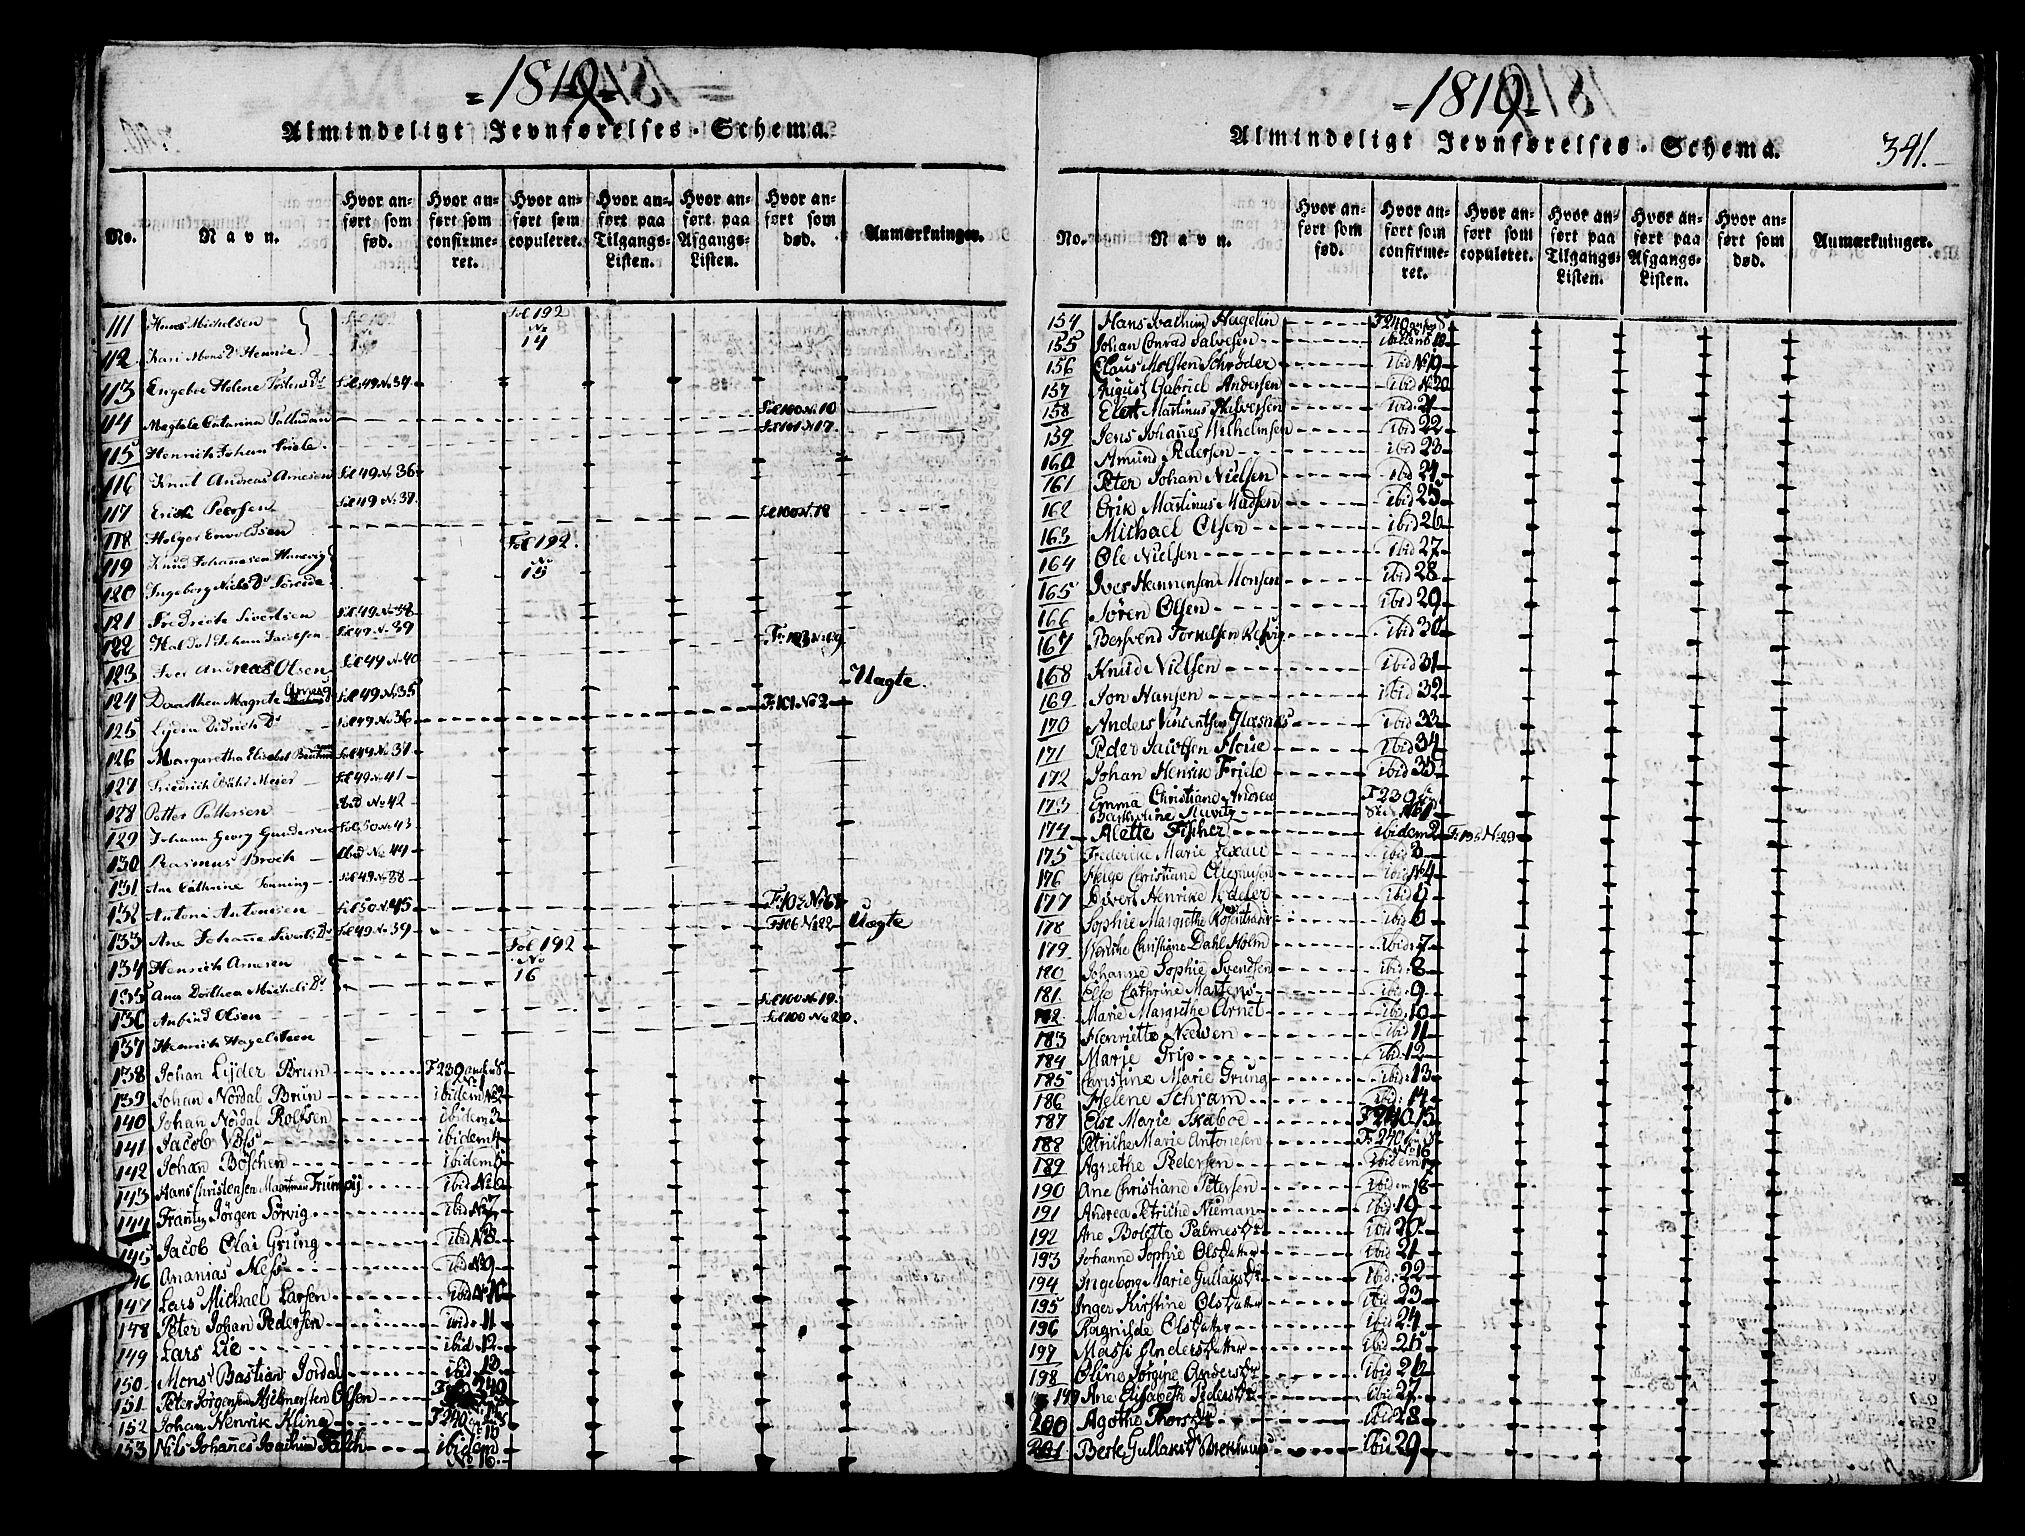 = 1819 =
Almindeligt Jevnførelses-Schema.
No.
Navn.
Hvor anført som fød.
Hvor anført som confirmeret.
Hvor anført som copuleret.
Hvor anført paa Tilgangs-Listen.
Hvor anført paa Afgangs-Listen.
Hvor anført som død.
Anmærkninger.
111 Hans Michelsen Fol 192
112 Kari Mons Dr No 14
113 Engeboe Helene Dr Fol 49 No 34
114 Magdele Catarina Fol 100 No 10
115 Henrich Johan Fol 101 No 17
116 Knut Andreas Arnesen Fol 49 No 36
117 Erich Peersen Fol 49 No 37
118 Holger Envoldsen Fol 100 No 18
119 Knud Johannesen Fol 192
120 Ingeborg Niels Dr No 15
121 Fredrich Sivertsen Fol 49 No 38
122 Johan Jacobsen Fol 49 No 39 F: 103 No 69
123 Iver Andreas Olsen Fol 49 No 40
124 Dorothea Magrete Fol 49 No 35 Uægte.
125 Lydia Didrich Dr Fol 49 No 36 F: 101 No 2
126 Margaretha Elisabet Fol 49 No 37
127 Friedrich Meier Fol 49 No 41
128 Petter Pettersen ibid No 42
129 Johann Georg Gundersen Fol 50 No 43
130 Rasmus Broch ibid No 44
131 Ane Cathrine Tonning Fol 49 No 38
132 Antoni Antonisen Fol 50 No 45
133 Ane Johanne Siverts Dr Fol 49 No 39 F: 106 No 22 Uægte
134 Henrich Arnesen Fol 192 No 16
135 Ana Dorthea Michels Dr
136 Anbind Olsen Fol 100 No 19
137 Henrich Hagelsteen Fol 100 No 20
138 Johan Lyder Brun F 239 No 1
139 Johan Nordal Brun ibidem No 2
140 Johan Nordal Rolfsen ibidem 3
141 Jacob Voss ibidem 4
142 Johan Böschen ibidem 5
143 Hans Christensen ibid No 6
144 Frantz Jörgen Sörvig ibid No 7
145 Jacob Olai Grung ibid No 8
146 Ananias ibid No 9
147 Lars Michael Larsen ibid No 10
148 Peter Johan Pedersen ibid 11
149 Lars Lie ibid. 12
150 Mons Bastian Jordal ibid 13
151 Peter Jørgensen Olsen F 240
152 Johan Henrik Kling F 240
153 Nils Johannes Joachim ibidem No 16.
= 1819 =
Almindeligt Jevnførelses-Schema.
341.
No.
Navn.
Hvor anført som fød.
Hvor anført som confirmeret.
Hvor anført som copuleret.
Hvor anført paa Tilgangs-Listen.
Hvor anført paa Afgangs-Listen.
Hvor anført som død.
Anmærkninger.
154 Hans Joachim Hagelin F 240
155 Johan Conrad Salvesen ibidem 18
156 Claus Schröder ibid No 19
157 August Gabriel Andersen ibid No 20
158 Elert Martinus Halversen ibid. 21
159 Jens Johannes Wilhelmsen ibid 22
160 Amund Pedersen ibid 23
161 Peter Johan Nielsen ibid 24
162 Erik Martinus Madsen ibid 25
163 Michael Olsen ibid 26
164 Ole Nielsen ibid 27
165 Iver Hemmensen Monsen ibid 28
166 Sören Olsen ibid 29
167 Bersvend ibid 30
168 Knud Nielsen ibid 31
169 Jon Hansen ibid 32
170 Anders Vincentsen ibid 33
171 Peder Jacobsen ibid 34
172 Johan Henrik Friele ibid 35
173 Emma Christiane Andrea F 239
Bartholine No 1
174 Alette Fischer ibidem 2 F: 195 No 29
175 Frederike Marie ibid 3
176 Helge Christiane ibid No 4
177 Henrike ibid 5
178 Sophie Margrethe ibid 6
179 Christiane Dahl Holm ibid: 7
180 Johanne Sophie Svendsen ibid: 8
181 Else Cathrine Martens ibid: 9
182 Marie Margrethe ibid: 10
183 Henriette ibid: 11
184 Marie Grip ibid: 12
185 Christine Marie Grung ibid: 13
186 Helene Schram ibid: 14
187 Else Marie Skaboe F 240 15
188 Petriche Marie Antonesen F: 240 No 16
189 Agnethe Pedersen ibidem 17
190 Ane Christiane Petersen ibidem 18
191 Andrea Petriche Nieman ibid 19
192 Ane Bolette Palmes Dr ibid 20
193 Johanne Sophie Olsdatter ibid 21
194 Ingeborg Marie Gullaks Dr ibid: 22
195 Inger Kirstine Olsdatter ibid 23
196 Ragnilde Olsdatter ibid 24
197 Massi Andersdatter ibid 25
198 Oline Jörgine Anders Dr ibid 26
199 Ane Elisabeth Peders Dr ibid 27
200 Agothe Thors Dr ibid 28
201 Berte Gullaks Dr ibid 29